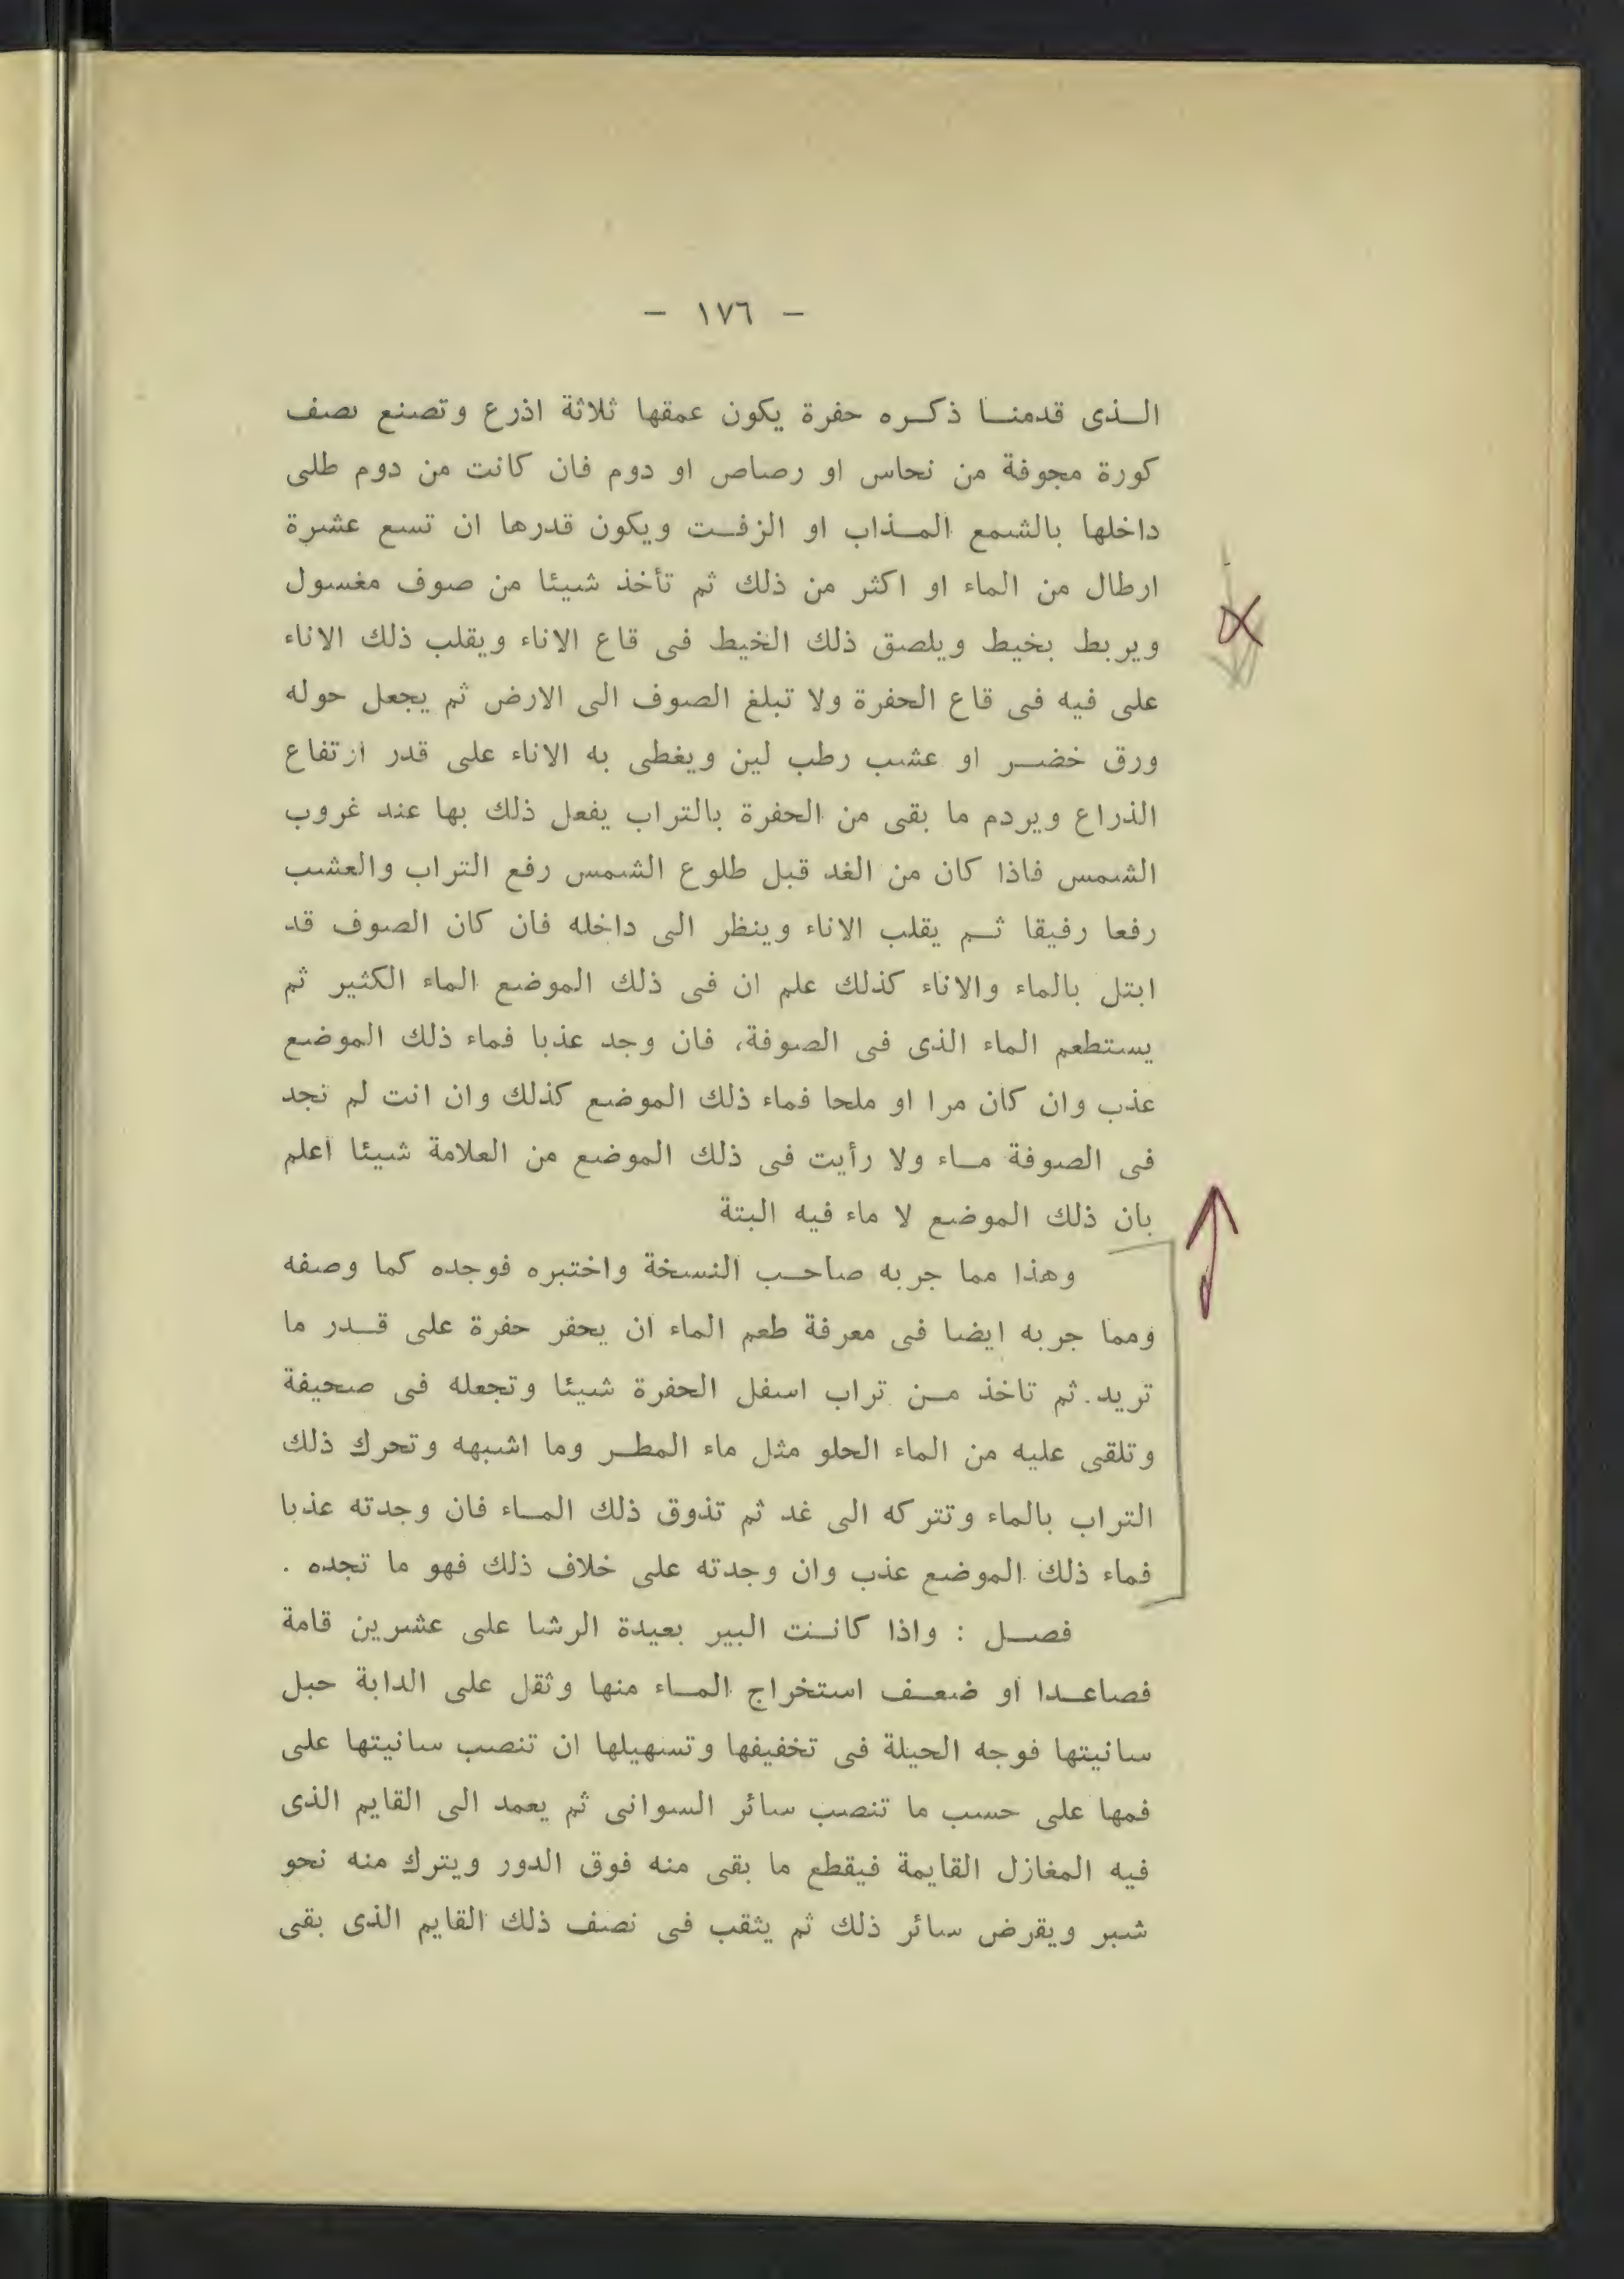 - ١٧٦ -
الـذى قدمنـا ذكـره حفرة يكون عمقها ثلاثة اذرع وتصنع نصف
كورة مجوفة من نحاس او رصاص او دوم فان كانت من دوم طلى
داخلها بالشمع المـذاب او الزفـت ويكون قدرها ان تسع عشرة
ارطال من الماء او اكثر من ذلك ثم تأخذ شيئا من صوف مغسول
ويربط بخيط ويلصق ذلك الخيط فى قاع الاناء ويقلب ذلك الاناء
على فيه فى قاع الحفرة ولا تبلغ الصوف الى الارض ثم يجعل حوله
ورق خضـر او عشب رطب لين ويغطى به الاناء على قدر ارتفاع
الذراع ويردم ما بقى من الحفرة بالتراب يفعل ذلك بها عند غروب
الشمس فاذا كان من الغد قبل طلوع الشمس رفع التراب والعشب
رفعا رفيقا ثـم يقلب الاناء وينظر الى داخله فان كان الصوف قد
ابتل بالماء والاناء كذلك علم ان فى ذلك الموضع الماء الكثير ثم
يستطعم الماء الذى فى الصوفة، فان وجد عذبا فماء ذلك الموضع
عذب وان كان مرا او ملحا فماء ذلك الموضع كذلك وان انت لم نجد
فى الصوفة مـاء ولا رأيت فى ذلك الموضع من العلامة شيئا اعلم
بان ذلك الموضع لا ماء فيه البتة
وهذا مما جربه صاحـب النسخة واختبره فوجده كما وصفه
ومما جربه ايضا فى معرفة طعم الماء ان يحفر حفرة على قـدر ما
تريد. ثم تاخذ مـن تراب اسفل الحفرة شيئا وتجعله فى صحيفة
وتلقى عليه من الماء الحلو مثل ماء المطـر وما اشبهه وتحرك ذلك
التراب بالماء وتتركه الى غد ثم تذوق ذلك المـاء فان وجدته عذبا
فماء ذلك الموضع عذب وان وجدته على خلاف ذلك فهو ما تجده .
فصـل : واذا كانـت البير بعيدة الرشا على عشرين قامة
فصاعـدا او ضعـف استخراج المـاء منها وثقل على الدابة حبل
سانيتها فوجه الحيلة فى تخفيفها وتسهيلها ان تنصب سانيتها على
فمها على حسب ما تنصب سائر السوانى ثم يعمد الى القايم الذى
فيه المغازل القايمة فيقطع ما بقى منه فوق الدور ويترك منه نحو
شبر ويقرض سائر ذلك ثم يثقب فى نصف ذلك القايم الذى بقى